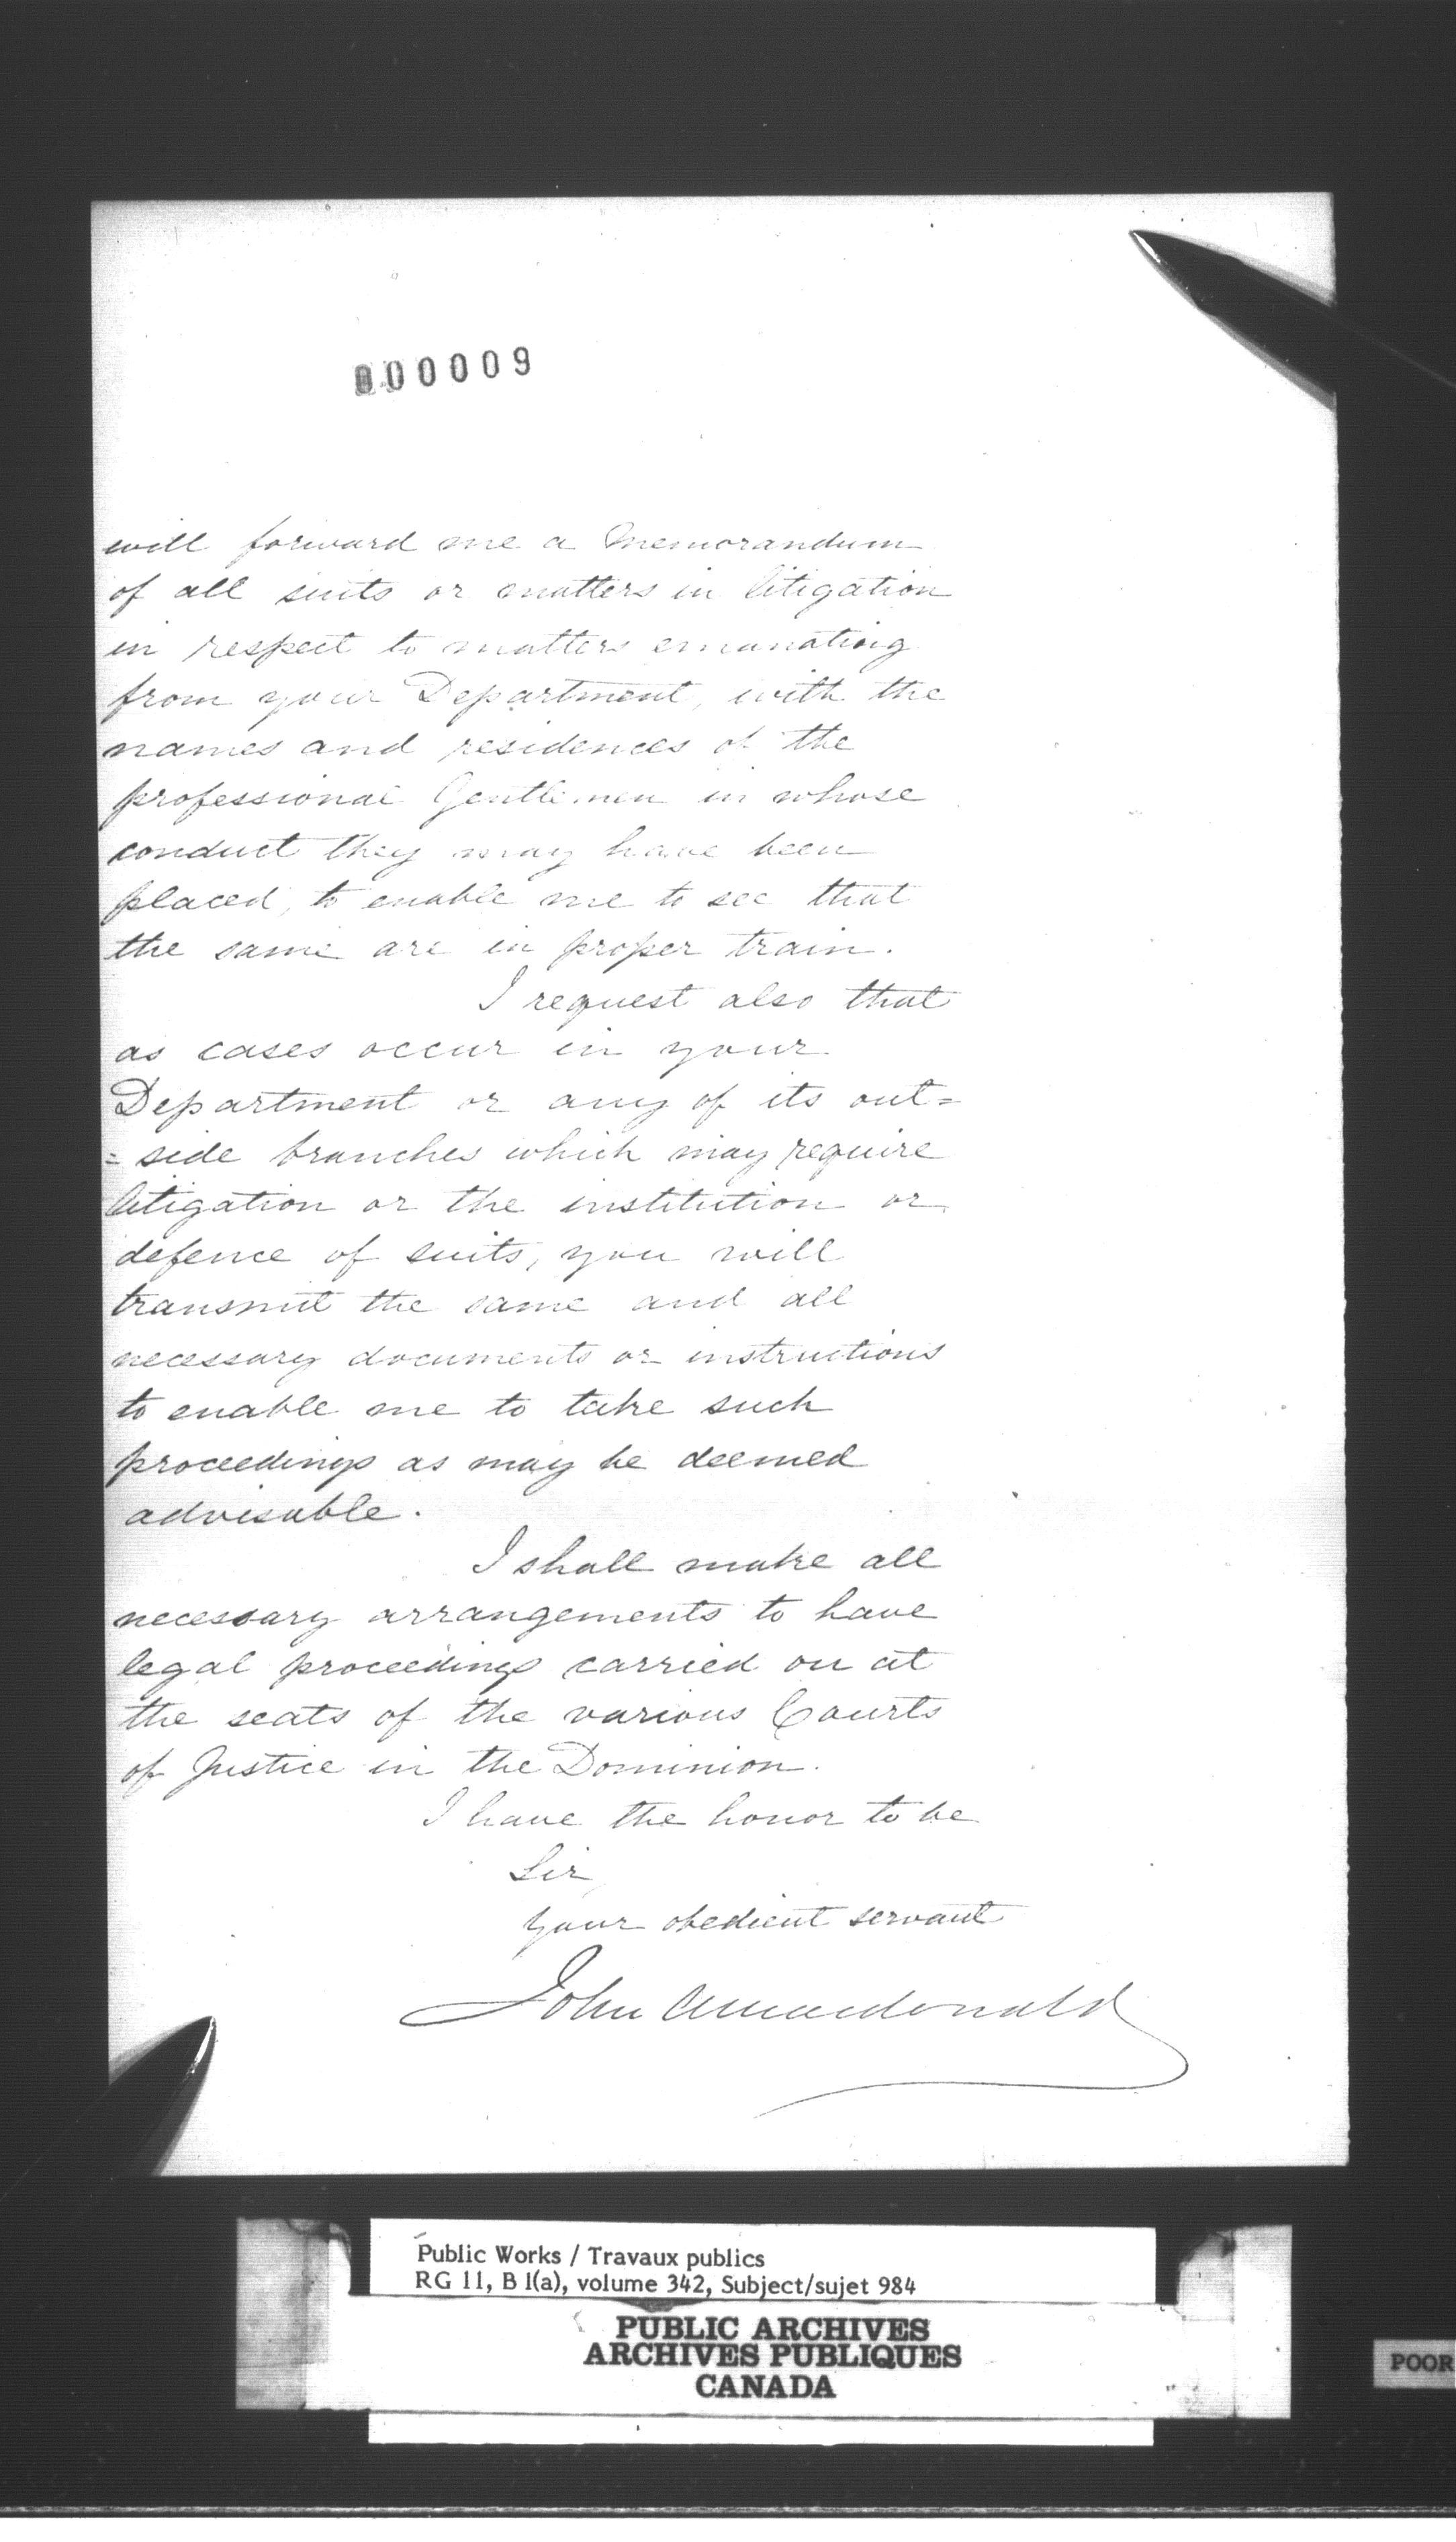 000009
will forward me a Memorandum
of all suits or matters in litigation
in respect to matters emanating
from your Department, with the
names and residences of the
professional Gentlemen in whose
conduct they may have been
placed, to enable me to see that
the same are in proper train.
I request also that
as cases occur in your
Department or any of its out=
=side branches which may require
litigation or the institution or
defence of suits, you will
transmit the same and all
necessary documents or instructions
to enable me to take such
proceedings as may be deemed
advisable.
I shall make all
necessary arrangements to have
legal proceedings carried on at
the seats of the various Courts
of Justice in the Dominion.
I have the honor to be
Sir,
Your obedient servant
John A Macdonald
Public Works / Travaux publics
RG 11, B 1(a), volume 342, Subject/sujet 984
PUBLIC ARCHIVES
ARCHIVES PUBLIQUES
CANADA
POOR